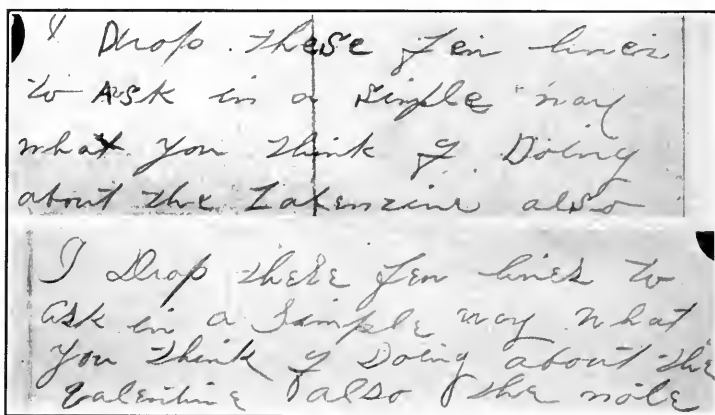 I Drop these few lines
to Ask in a simple way
what you think of Doing
about the also
I Drop these few lines to
ask in a Simple way what
you think of Doing about the
valentine also the note